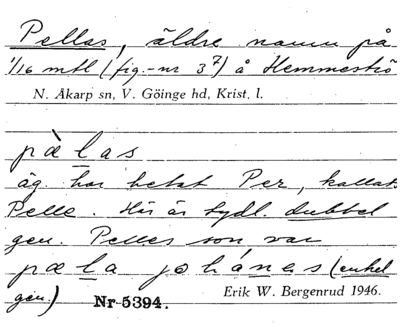 Pellas, äldre namn på
1/16 mtl (fig.-nr 3⁷) å Hemmeströ
N. Åkarp sn, V. Göinge hd, Krist. l.
pæ̀las
äg. har hetat Per, kallat
Pelle. Här är tydl. dubbel
gen. Pelles son var
pæla johánes (enkel
gen.) Nr 5394. Erik W. Bergenrud 1946.